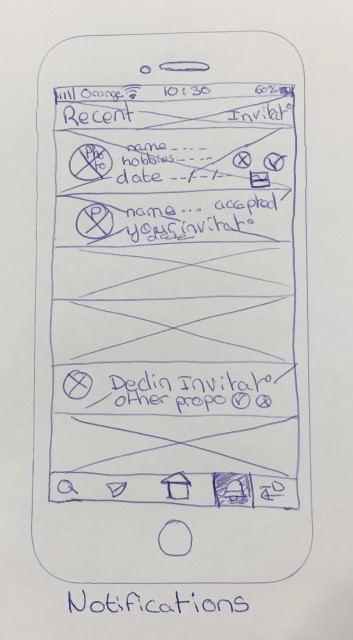 Orange 10:30 60%
Recent Invitat°
Photo name ----
hobbies ----
date --/--/--
P name --- accepted
your invitat°
date
Declin Invitat°
other propo
Notifications